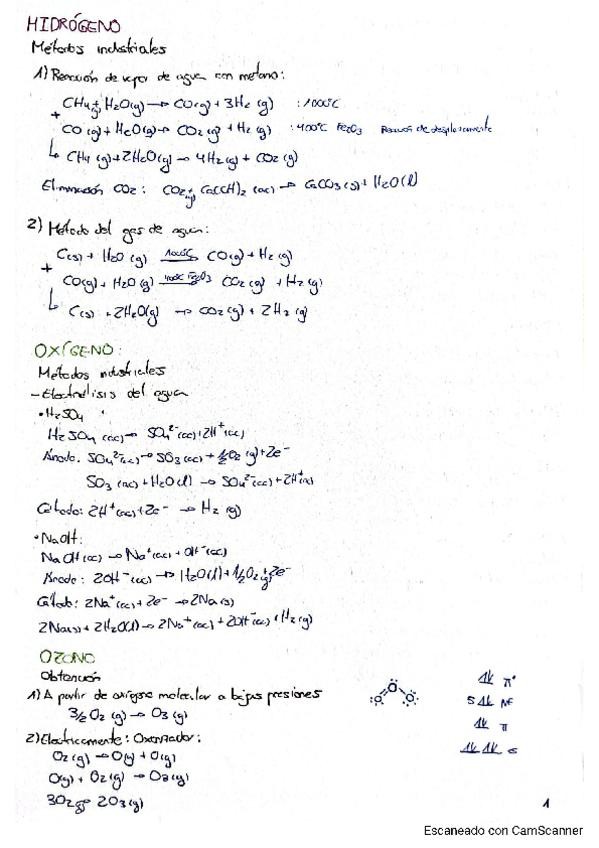 HIDRÓGENO
Métodos industriales
1) Reacción de vapor de agua con metano:
CH4(g) + H2O(g) → CO(g) + 3H2 (g) : 1000°C
+
CO (g) + H2O(g) → CO2 (g) + H2 (g) : 400°C Fe2O3 Reacción de desplazamiento
↳ CH4 (g) + 2H2O(g) → 4H2 (g) + CO2 (g)
Eliminación CO2 : CO2(g) + Ca(OH)2 (ac) → CaCO3 (s) + H2O (l)
2) Método del gas de agua:
C(s) + H2O (g) 1000°C→ CO(g) + H2 (g)
+
CO(g) + H2O (g) 400°C Fe2O3→ CO2 (g) + H2 (g)
↳ C(s) + 2H2O(g) → CO2 (g) + 2H2 (g)
OXÍGENO:
Métodos industriales
- Electrólisis del agua
• H2SO4
H2SO4 (ac) → SO4²⁻ (ac) + 2H⁺ (ac)
Ánodo: SO4²⁻(ac) → SO3 (ac) + ½O2 (g) + 2e⁻
SO3 (ac) + H2O(l) → SO4²⁻ (ac) + 2H⁺(ac)
Cátodo: 2H⁺(ac) + 2e⁻ → H2 (g)
• NaOH:
NaOH (ac) → Na⁺(ac) + OH⁻(ac)
Ánodo: 2OH⁻(ac) → H2O(l) + 1/2O2(g) + 2e⁻
Cátodo: 2Na⁺(ac) + 2e⁻ → 2Na(s)
2Na(s) + 2H2O(l) → 2Na⁺(ac) + 2OH⁻(ac) + H2 (g)
OZONO
Obtención
1) A partir de oxígeno molecular a bajas presiones
3/2 O2 (g) → O3 (g)
2) Electricamente: Ozonizador:
O2 (g) → O(g) + O(g)
O(g) + O2 (g) → O3(g)
3O2(g) → 2O3 (g)
O O O
1k π*
5 1k NE
1k π
1k 1k σ
1
Escaneado con CamScanner